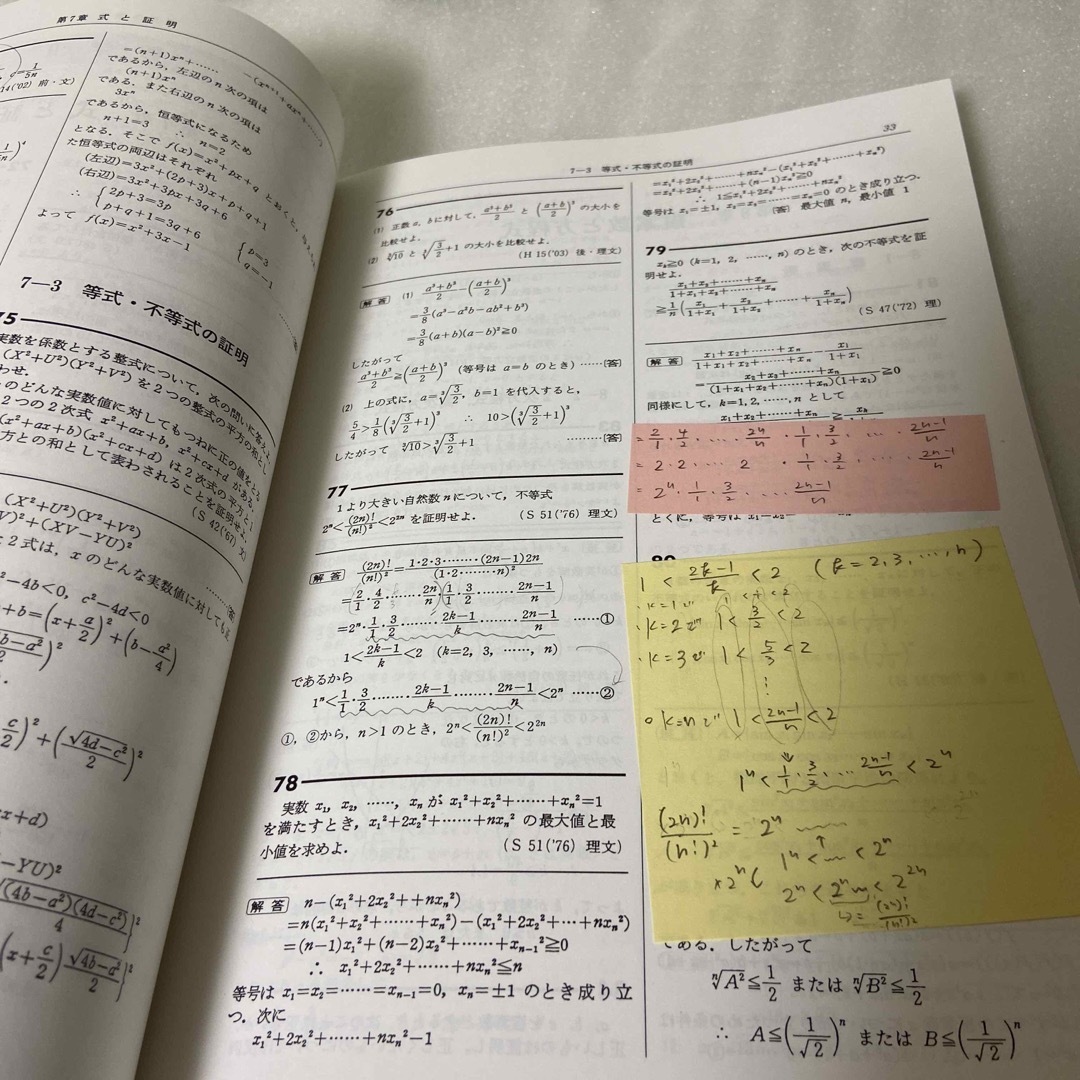 第7章 式 と 証 明
=(n+1)xⁿ+……
であるから，左辺の n 次の項は
(n+1)xⁿ
である．また右辺の n 次の項は
3xⁿ
であるから，恒等式になるため
n+1=3 ∴ n=2
となる．そこで f(x)=x²+px+q とおくと，
た恒等式の両辺はそれぞれ
(左辺)=3x²+(2p+3)x+p+q+1
(右辺)=3x²+3px+3q+6
∴ { 2p+3=3p
p+q+1=3q+6
{ p=3
q=-1
よって f(x)=x²+3x-1
7—3 等式・不等式の証明
75
実数を係数とする整式について，次の問いに答えよ．
(X²+U²)(Y²+V²) を2つの整式の平方の和とし
わせ．
のどんな実数値に対してもつねに正の値をとる
2つの2次式 x²+ax+b, x²+cx+d がある．
(x²+ax+b)(x²+cx+d) は2次式の平方と1
方との和として表わされることを証明せよ．
(S 42('67) 文)
(X²+U²)(Y²+V²)
V)²+(XV-YU)²
2式は，x のどんな実数値に対しても正
²-4b<0, c²-4d<0
+b=(x+a/2)²+(b-a²/4)
c/2)²+(√(4d-c²)/2)²
x+d)
-YU)²
√((4b-a²)(4d-c²))/4}²
(x+c/2)√(4b-a²)/2}²
33
7—3 等式・不等式の証明
76
(1) 正数 a, b に対して，(a³+b³)/2 と ((a+b)/2)³ の大小を
比較せよ．
(2) ³√10 と ³√(3/2)+1 の大小を比較せよ．
(H 15('03) 後・理文)
解 答 (1) (a³+b³)/2-((a+b)/2)³
=3/8(a³-a²b-ab²+b³)
=3/8(a+b)(a-b)²≧0
したがって
(a³+b³)/2≧((a+b)/2)³ (等号は a=b のとき) ……(答)
(2) 上の式に，a=³√(3/2), b=1 を代入すると，
5/4>1/8(³√(3/2)+1)³ ∴ 10>(³√(3/2)+1)³
したがって ³√10>³√(3/2)+1 ………(答)
77
1より大きい自然数 n について，不等式
2ⁿ<(2n)!/(n!)²<2²ⁿ を証明せよ．
(S 51('76) 理文)
解 答 (2n)!/(n!)²=1·2·3·……·(2n-1)2n/(1·2·……·n)²
=2/1·4/2·……·2n/n(1/1·3/2·……·(2n-1)/n)
=2ⁿ·1/1·3/2·……·(2k-1)/k·……·(2n-1)/n ……①
1<(2k-1)/k<2 (k=2, 3, ……, n)
であるから
1ⁿ<1/1·3/2·……·(2k-1)/k·……·(2n-1)/n<2ⁿ ……②
①，②から，n>1 のとき，2ⁿ<(2n)!/(n!)²<2²ⁿ
78
実数 x₁, x₂, ……, xₙ が x₁²+x₂²+……+xₙ²=1
を満たすとき，x₁²+2x₂²+……+nxₙ² の最大値と最
小値を求めよ．
(S 51('76) 理文)
解 答 n-(x₁²+2x₂²++nxₙ²)
=n(x₁²+x₂²+……+xₙ²)-(x₁²+2x₂²+…+nxₙ²)
=(n-1)x₁²+(n-2)x₂²+……+xₙ₋₁²≧0
∴ x₁²+2x₂²+……+nxₙ²≦n
等号は x₁=x₂=……=xₙ₋₁=0, xₙ=±1 のとき成り立
つ．次に
x₁²+2x₂²+……+nxₙ²-1
=x₁²+2x₂²+……+nxₙ²-(x₁²+x₂²+……+xₙ²)
=x₂²+2x₃²+……+(n-1)xₙ²≧0
∴ 1≦x₁²+2x₂²+……+nxₙ²
等号は x₁=±1, x₂=x₃=……=xₙ=0 のとき成り立つ．
(答) 最大値 n，最小値 1
79
xₖ≧0 (k=1, 2, ……, n) のとき，次の不等式を証
明せよ．
(x₁+x₂+……+xₙ)/(1+x₁+x₂+……+xₙ)
≧1/n(x₁/(1+x₁)+x₂/(1+x₂)+……+xₙ/(1+xₙ))
(S 47('72) 理)
解 答 (x₁+x₂+……+xₙ)/(1+x₁+x₂+……+xₙ)-x₁/(1+x₁)
=(x₂+x₃+……+xₙ)/((1+x₁+x₂+……+xₙ)(1+x₁))≧0
同様にして，k=1, 2, ……, n として
x₁+x₂+……+xₙ ≧ xₖ
=2/1·4/2·…·2n/n·1/1·3/2·…·(2n-1)/n
=2·2·…2·1/1·3/2·…·(2n-1)/n
=2ⁿ·1/1·3/2·…·(2n-1)/n
とくに，等号は x₁=x₂=
80
1<(2k-1)/k<2 (k=2,3,…,n)
·k=1で 1<1<2
·k=2で 1<3/2<2
·k=3で 1<5/3<2
⋮
∘k=nで 1<(2n-1)/n<2
1ⁿ<1/1·3/2·…(2n-1)/n<2ⁿ
(2n)!/(n!)²=2ⁿ
↑
1ⁿ<〰<2ⁿ
×2ⁿ(
2ⁿ<2ⁿ〰<2²ⁿ
↳=(2n)!/(n!)²
である．したがって
ⁿ√A²≦1/2 または ⁿ√B²≦1/2
∴ A≦(1/√2)ⁿ または B≦(1/√2)ⁿ